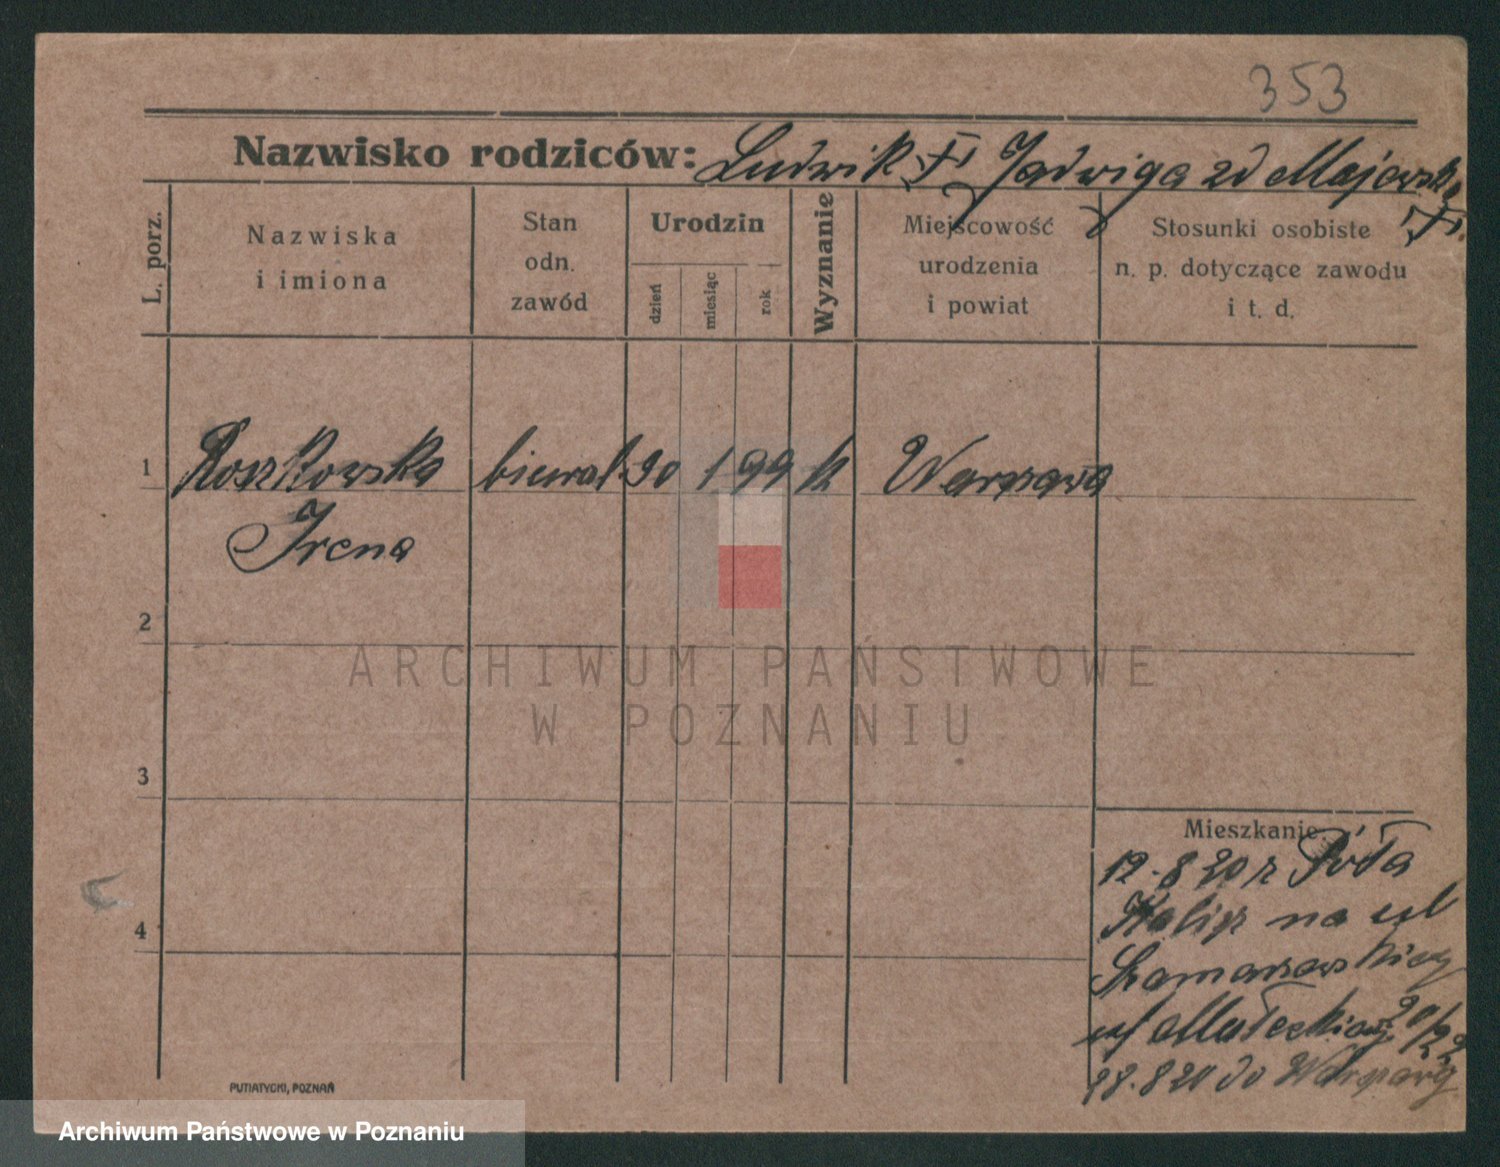 353
Nazwisko rodziców: Ludwik Jadwiga zd Majewska
L. porz.
Nazwiska i imiona
Stan odn. zawód
Urodzin
dzień
miesiąc
rok
Wyznanie
Miejscowość urodzenia i powiat
Stosunki osobiste n. p. dotyczące zawodu i t. d.
1 Roszkowska biural. 30 1 99 k Warszawa
Irena
2
3
4
Mieszkanie
19.8 20 z Pöta
Kalisz na ul
Szamarzewskiej
ul Małeckiej 20/22
28.8 20 do Warszawy
PUTIATYCKI, POZNAŃ
ARCHIWUM PAŃSTWOWE
W POZNANIU
Archiwum Państwowe w Poznaniu